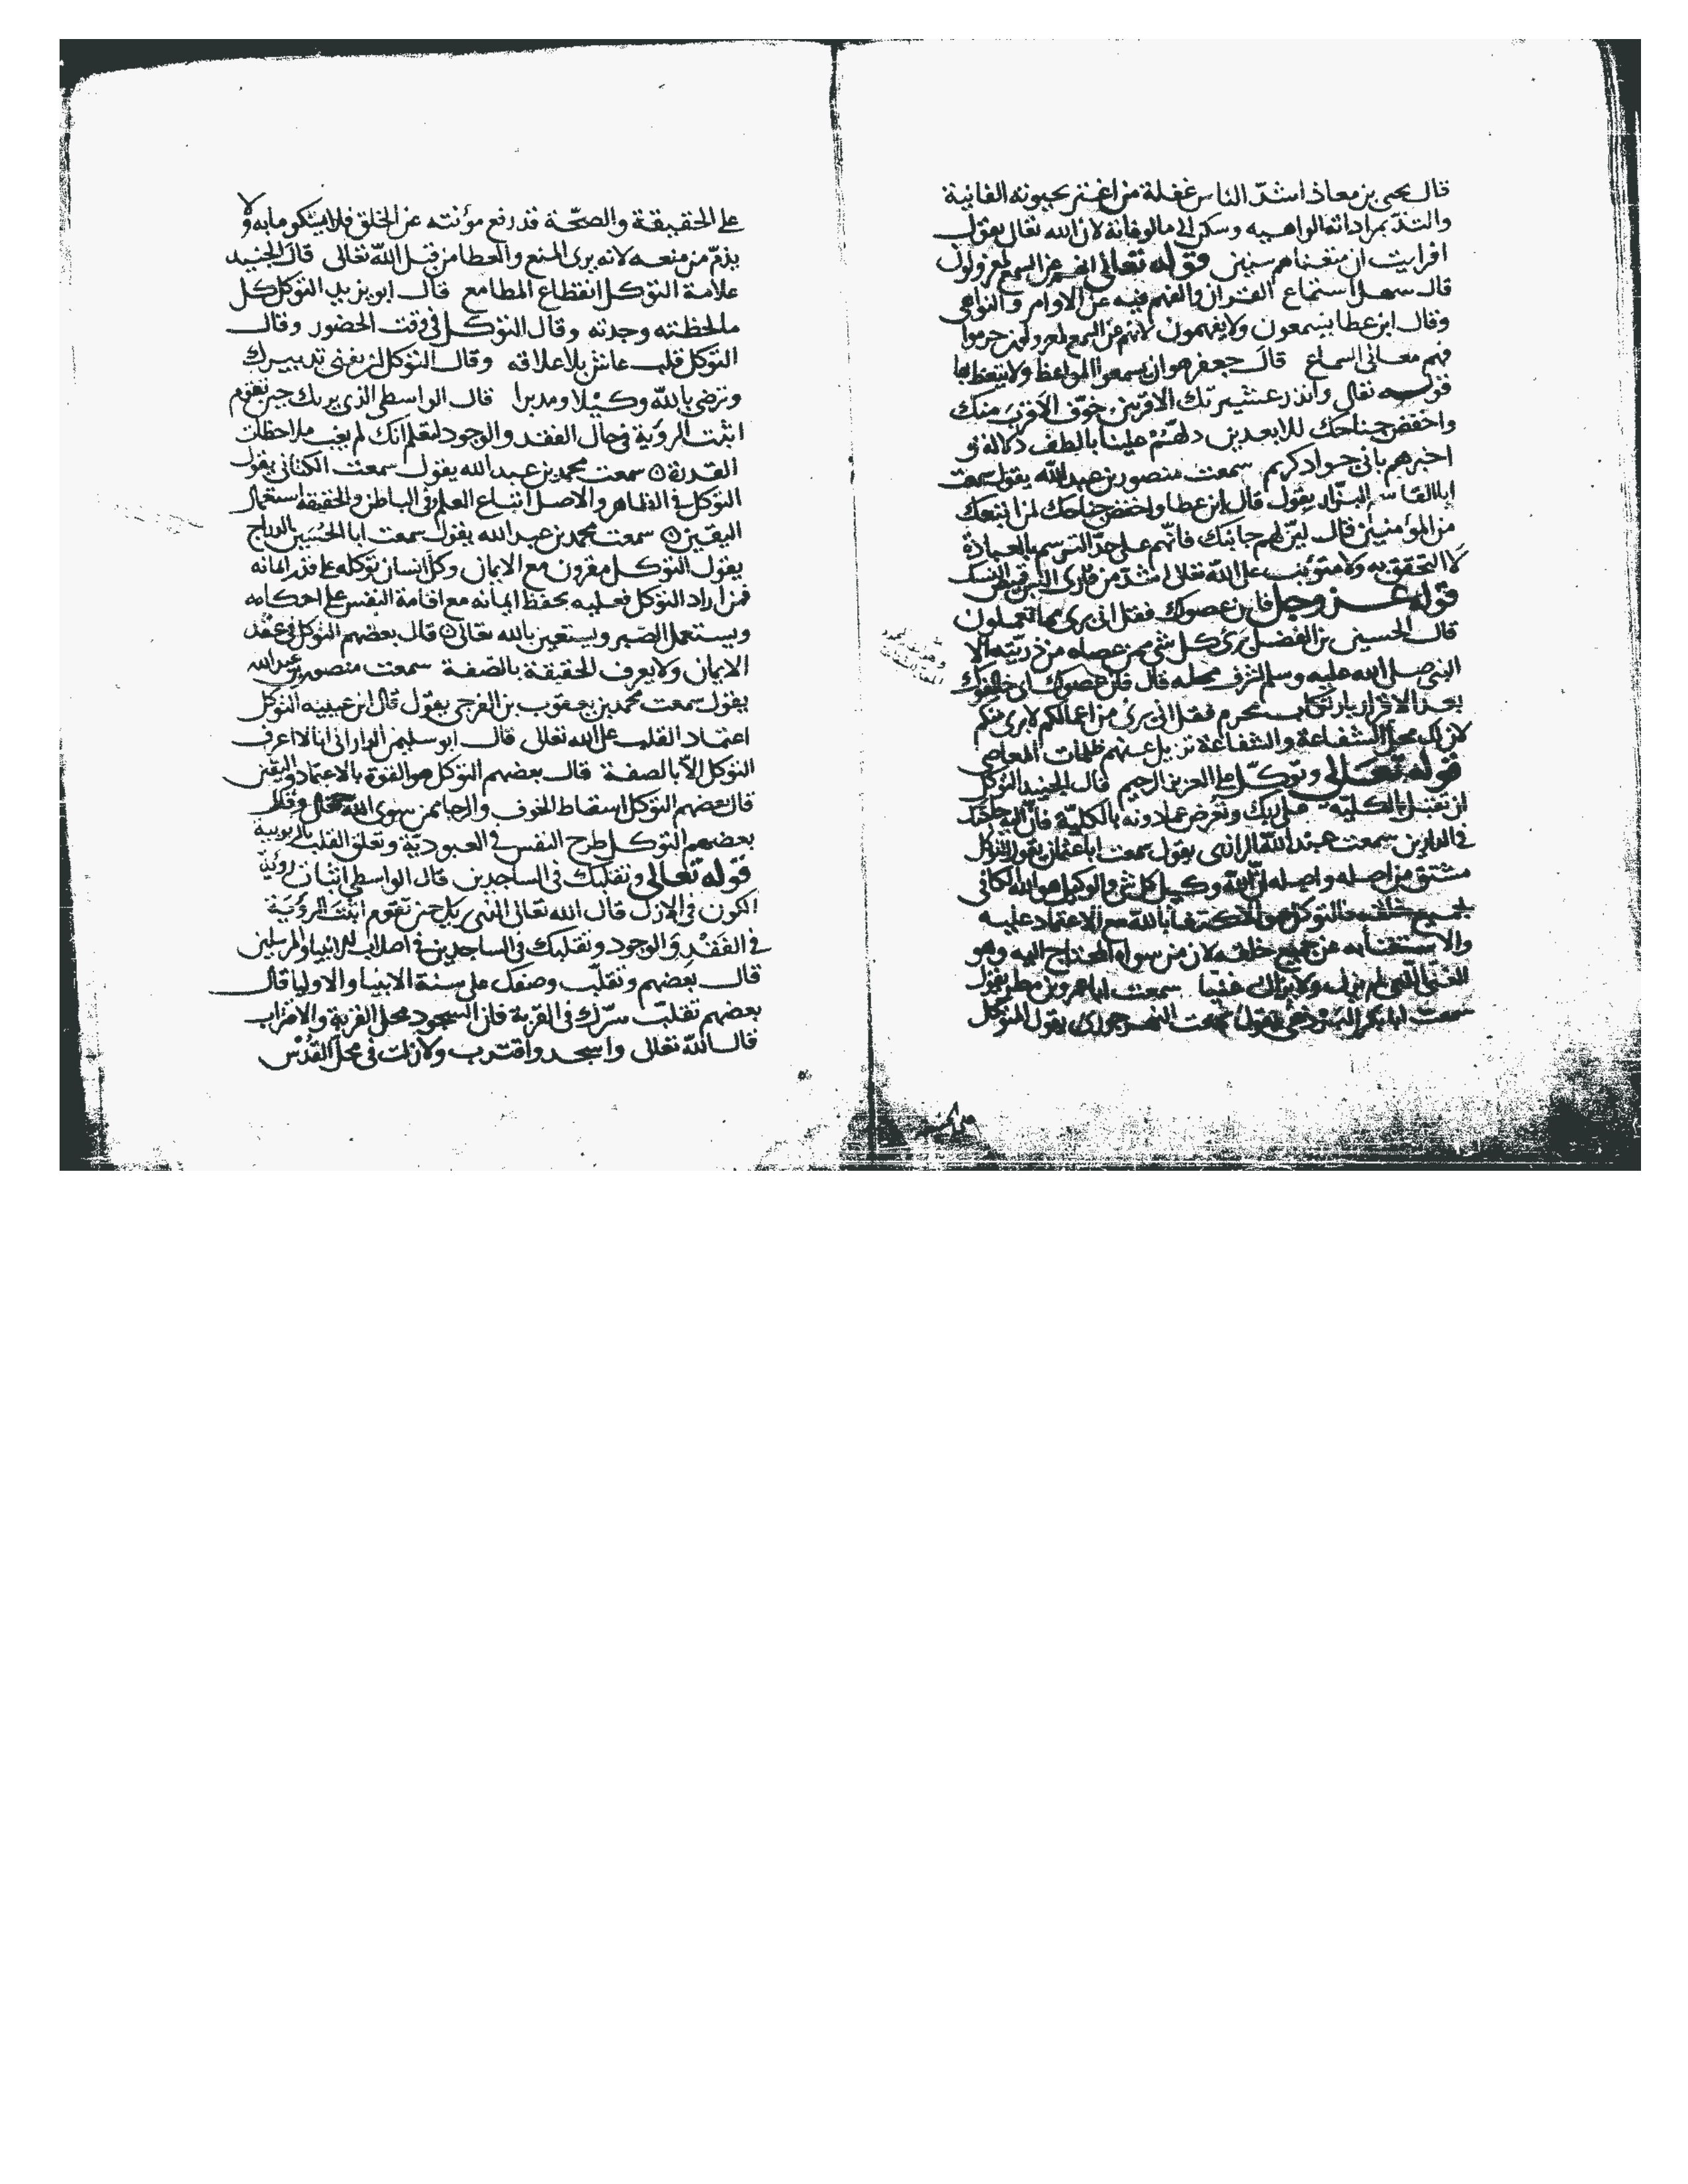 قال يحيى بن معاذ اشدّ الناس غفلة من اغتر بحيوته الفانية
والتذّ بمراداته الواهية وسكن الى مالوفاته لان الله تعالى يقول
افرايت ان متعناهم سنين قوله تعالى انهم عن السمع لمعزولون
قال سهل استماع القران والفهم فيه عن الاوامر والنواهي
وقال ابن عطا يسمعون ولا يفهمون لانهم عن السمع لمعزولون حرموا
فهم معانى السماع قال جعفر هو ان يسمعوا المواعظ ولا يتعظ بها
قوله تعالى وانذر عشيرتك الاقربين خوّف الاقرب منك
واخفض جناحك للابعدين دلهم علينا بالطف دلالة و
اخبرهم بانى جواد كريم سمعت منصور بن عبد الله يقول سمعت
ابا القاسم البزّار يقول قال ابن عطا واخفض جناحك لمن اتبعك
من المؤمنين قال ليّن لهم جانبك فانهم على حدّ الترسم بالعبادة
لا التحقق به ولا متوثب على الله تعالى اشدّ من قارى النسك
قوله عز وجل فان عصوك فقل انى برى مما تعملون
قال الحسين بن الفضل برى كل شى ممن عصاه من ذريته الا
النبى صلى الله عليه وسلم لشرف محله قال فان عصوك اى خالفوك
بعد الاقرار بارتكاب محرم فقل انى برى من اعمالكم لا برى منكم
لان لك محل الشفاعة والشفاعة تزيل عنهم ظلمات المعاصى
قوله تعالى وتوكّل على العزيز الرحيم قال الجنيد التوكل
ان تقبل بالكلية على ربك وتعرض عما دونه بالكلية فان اليه حاجتك
فى الدارين سمعت عبد الله الرازى يقول سمعت ابا عثمان يقول التوكل
مشتق من اصله واصله ان الله وكيل كل شى والوكيل هو الله الكافى
لجميع خلقه فالتوكل هو الاكتفا بالله مع الاعتماد عليه
والاستغنا به عن جميع خلقه لان من سواه المحتاج اليه وهو
الغنى الذى لم يزل ولا يزال غنيا سمعت ابا عمرو بن مطر يقول
سمعت ابا بكر يقول سمعت النهرجورى يقول المتوكل
على الحقيقة والصحّة قد رفع مؤنته عن الخلق فلا يشكو ما به ولا
يذمّ من منعه لانه يرى المنع والعطا من قبل الله تعالى قال الجنيد
علامة التوكل انقطاع المطامع قال ابو يزيد التوكل كل
ما لحظته وجدته وقال التوكل فى وقت الحضور وقال
التوكل قلب عاش بلا علاقة وقال التوكل ان يغنى تدبيرك
وترضى بالله وكيلا ومدبرا قال الواسطى الذى يريك حين تقوم
اثبت الرؤية فى حال الفقد والوجود لتعلم انك لم يغب ملاحظات
القدرة سمعت محمد بن عبد الله يقول سمعت الكتانى يقول
التوكل فى الظاهر والاصل اتباع العلم وفى الباطن والحقيقة استعمال
اليقين سمعت محمد بن عبد الله يقول سمعت ابا الحسين الدراج
يقول التوكل مقرون مع الايمان وكل انسان توكله على قدر ايمانه
فمن اراد التوكل فعليه بحفظ ايمانه مع اقامة النفس على احكامه
ويستعمل الصّبر ويستعين بالله تعالى قال بعضهم التوكل فى عقد
الايمان ولا يعرف الحقيقة بالصفة سمعت منصور بن عبد الله
يقول سمعت محمد بن يعقوب بن الفرجى يقول قال ابن عيينه التوكل
اعتماد القلب على الله تعالى قال ابو سليمن الدارانى انا لا اعرف
التوكل الا بالصفة قال بعضهم التوكل هو القوة بالاعتماد واليقين
قال بعضهم التوكل اسقاط الخوف والرجا ممن سوى الله تعالى وقال
بعضهم التوكل طرح النفس فى العبودية وتعلق القلب بالربوبية
قوله تعالى وتقلبك فى الساجدين قال الواسطى اثبات رؤية
الكون فى الازل قال الله تعالى الذى يريك حين تقوم اثبت الرؤية
فى الفقد والوجود وتقلبك فى الساجدين فى اصلاب الانبيا والمرسلين
قال بعضهم وتقلب وصفك على سنة الانبيا والاوليا قال
بعضهم تقلب سرّك فى القربة فان السجود محل القربة والاقتراب
قال الله تعالى واسجد واقترب ولا زلت فى محل القدس